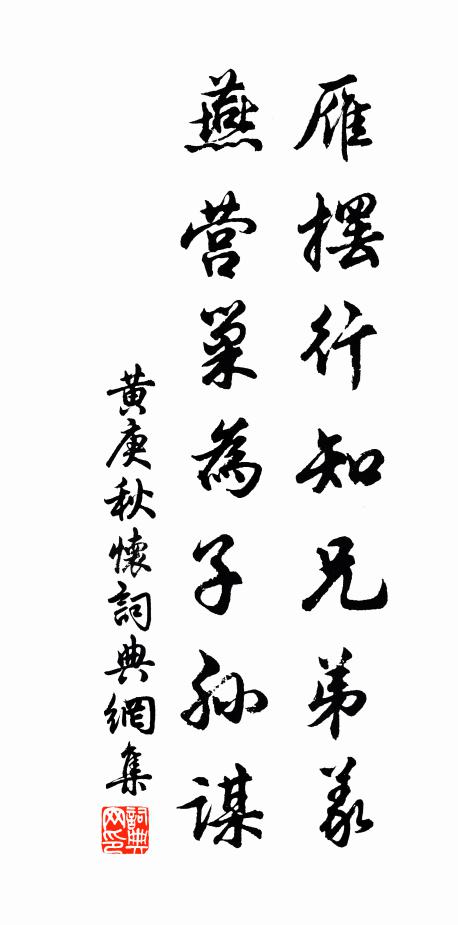 雁擺行知兄弟義
燕营巢為子孙謀
黄庚秋懷詞典網集
詞典网印